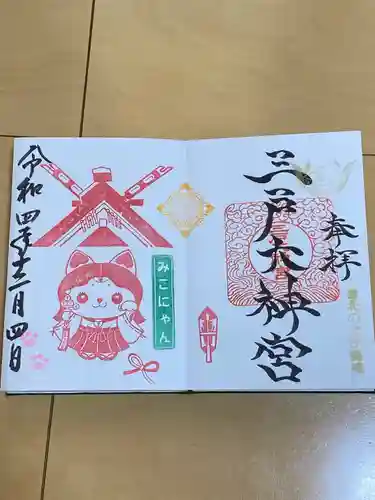 奉拝
三戸大神宮
みこにゃん
令和四年十二月四日